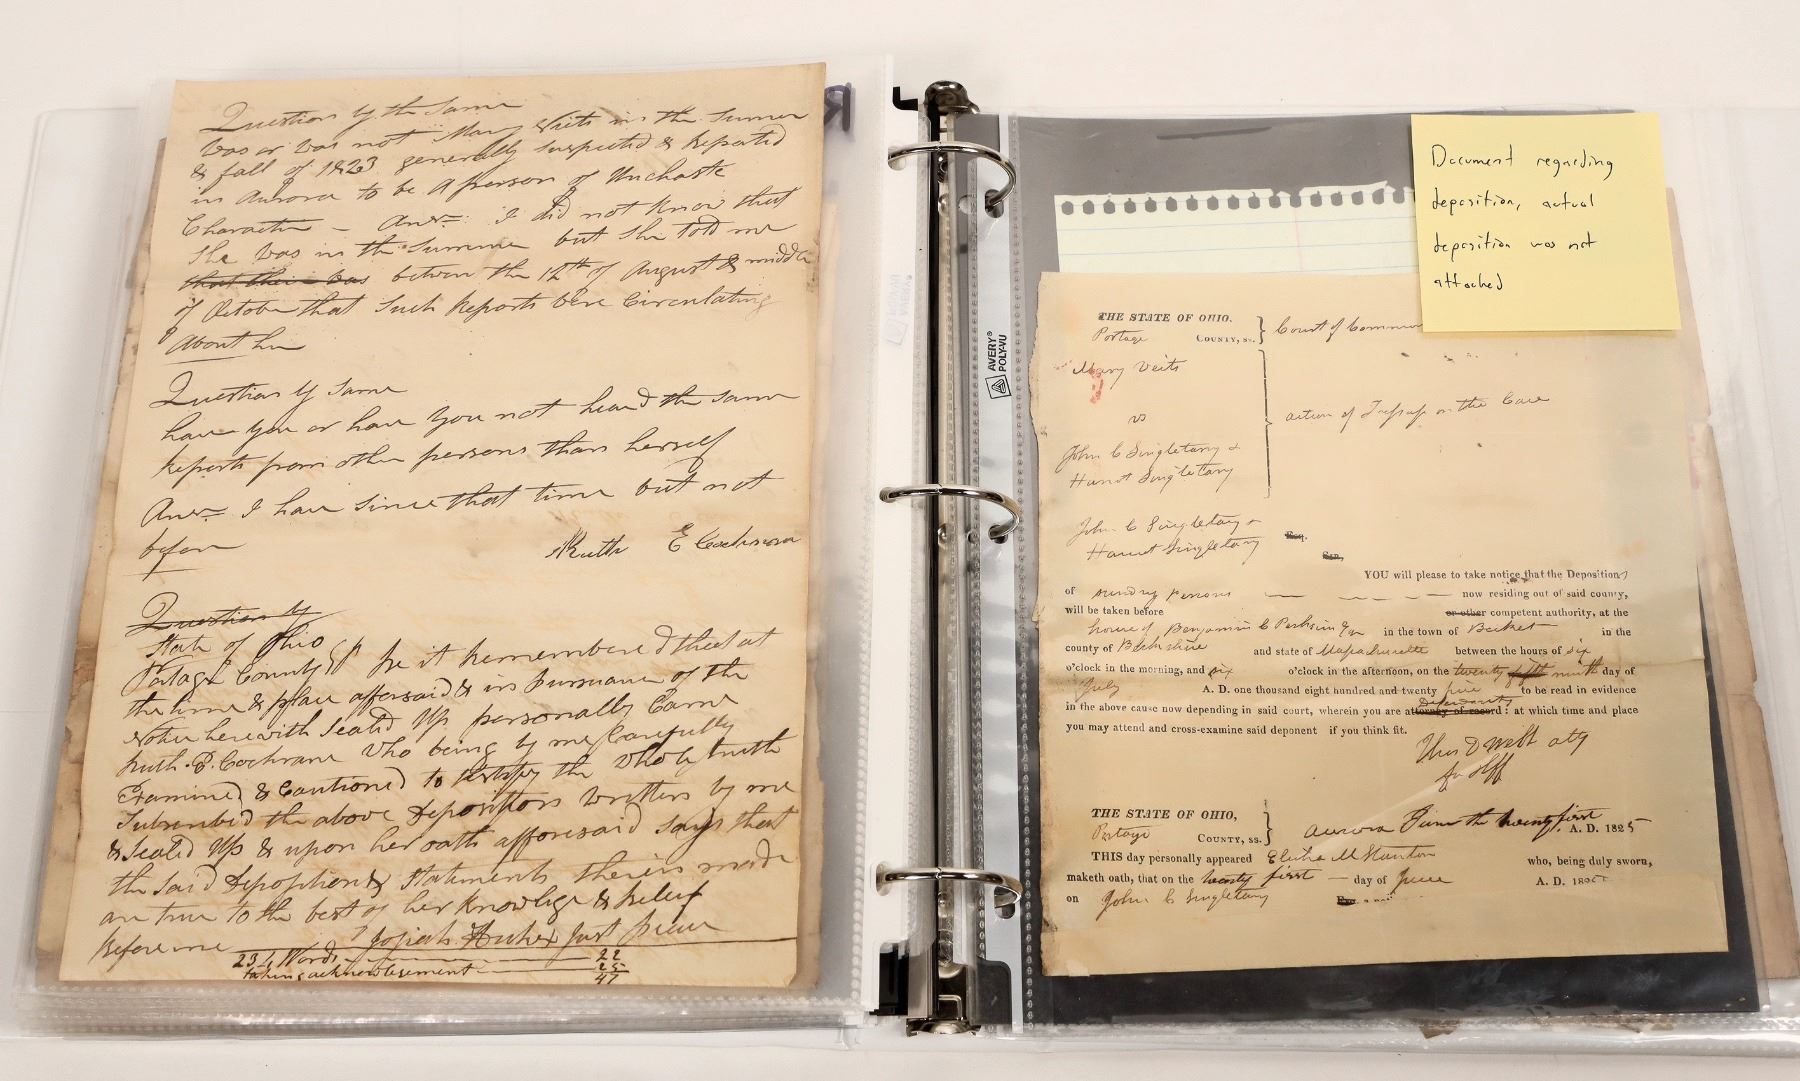 Question by the Same
Was or was not Mary Veits in the Sumer
& fall of 1823 generally Suspected & Reported
in Aurora to be a person of Unchaste
Character – Answ: I did not know that
She was in the Summer but She told me
that their was betwen the 12th of August & middle
of October that Such Reports were Circulating
About her
Question by Same
have you or have you not heard the Same
Reports from other persons than herself
Answ I have Since that time but not
before
Ruth E Cochran
Question by
State of Ohio
Portage County be it Remembered that at
the time & place aforsaid & in pursuance of the
Notice herewith Seald Up personally Came
Ruth E. Cochrane Who being by me Carefully
Examined & Cautioned to testify the Whole truth
Subscribed the above Deposition written by me
& Seald Up & upon her oath afforesaid Says that
the Said Deposition & Statements therein made
are true to the best of her Knowledge & belief
Before me Josiah Just Peace
23 Words 22
taking acknowledgement 25
47
AVERY®
POLY-VU
Document regarding
deposition, actual
deposition was not
attached
THE STATE OF OHIO,
Portage COUNTY, ss. } Court of Common
Mary Veits
vs
action of Trespass on the Case
John C Singletary &
Harriot Singletary
John C Singletary &
Harriot Singletary Esq.
YOU will please to take notice that the Deposition
of sundry persons now residing out of said county,
will be taken before or other competent authority, at the
house of Benjamin C Perkins in the town of Becket in the
county of Berkshire and state of Massachusetts between the hours of six
o'clock in the morning, and six o'clock in the afternoon, on the twenty fifth ninth day of
July A. D. one thousand eight hundred and twenty five to be read in evidence
in the above cause now depending in said court, wherein you are attorney of record Defendants : at which time and place
you may attend and cross-examine said deponent if you think fit.
Thos D Webb atty
for Plff
THE STATE OF OHIO,
Portage COUNTY, ss. } Aurora June the twenty first, A. D. 1825
THIS day personally appeared Elisha M Stanton who, being duly sworn,
maketh oath, that on the twenty first day of June A. D. 182
on John C Singletary